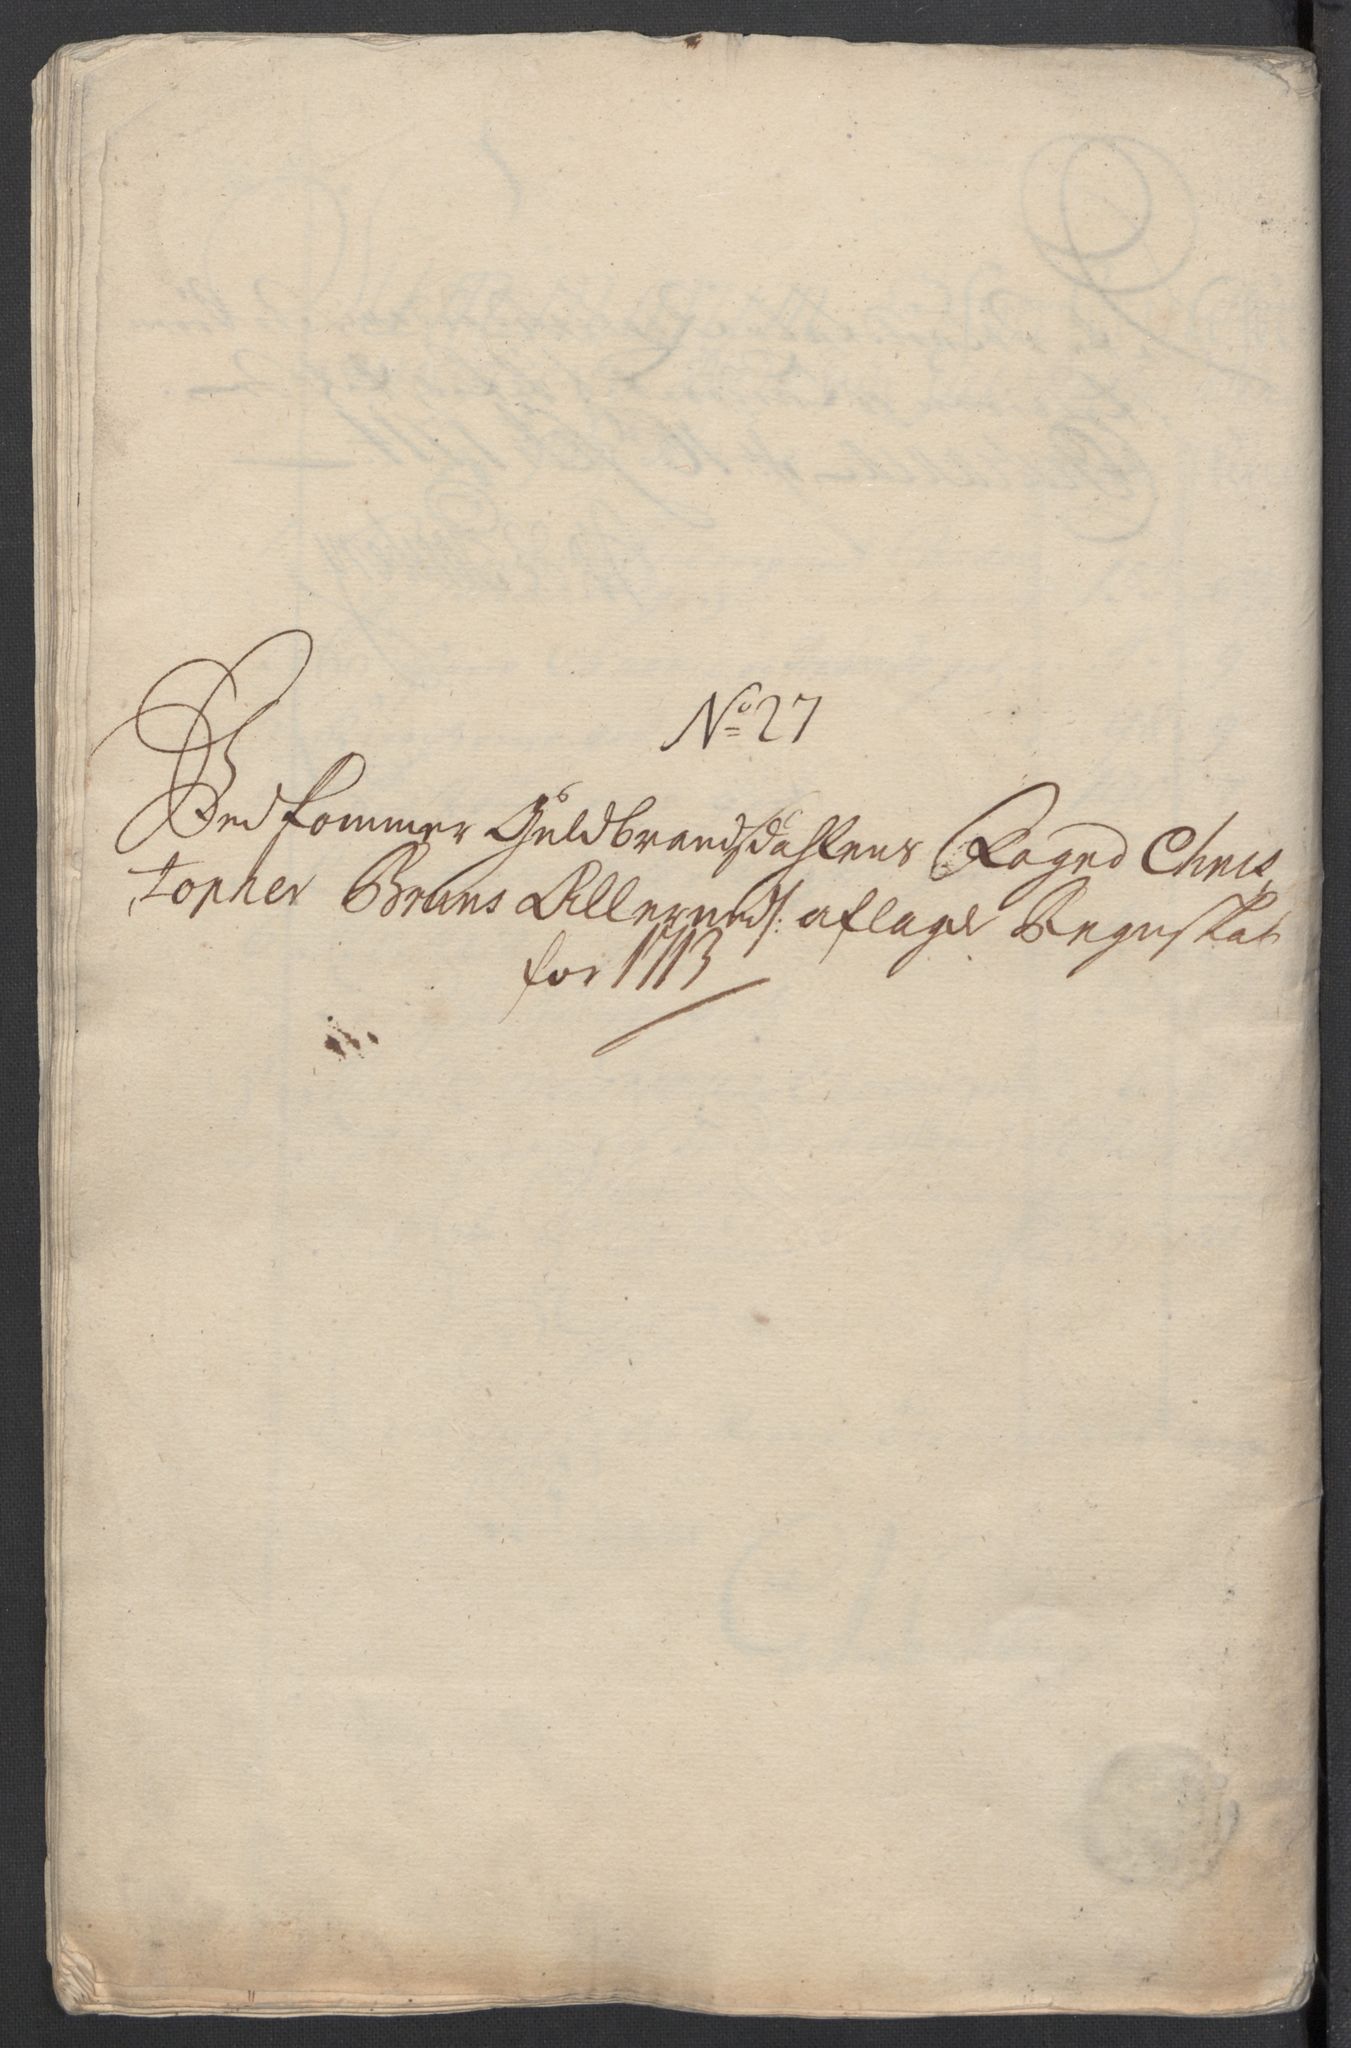 No 27
Vedkommer Guldbrandsdahlens Foged Chris
topher Bruns Allerund: aflagde Regnskab
for 1713